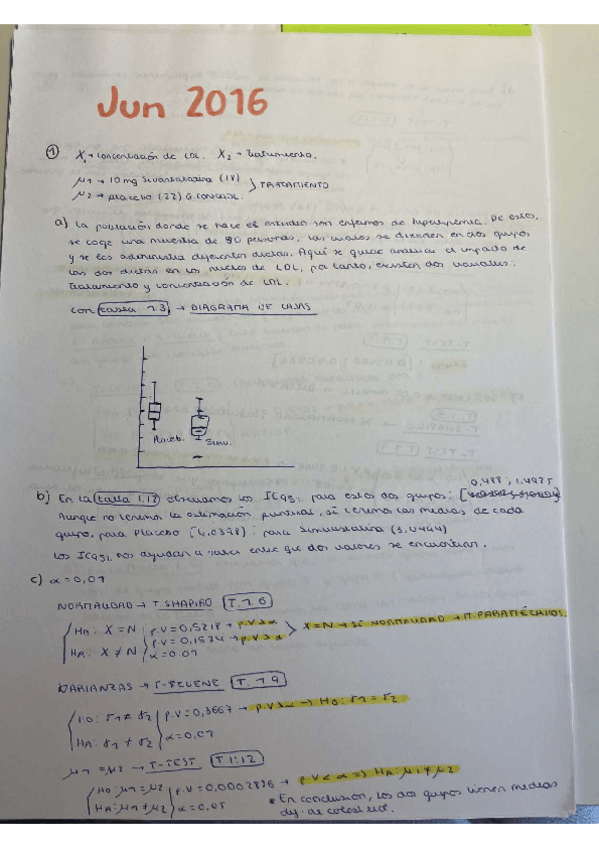 Jun 2016
① X₁ → concentración de LDL. X₂ → tratamiento.
μ1 → 10mg Simvastatina (18)
μ2 → placebo (22) G. CONTROL.
> TRATAMIENTO
a) La población donde se hace el estudio son enfermos de hiperlipemia. De estos,
se coge una muestra de personas, las cuales se dividen en dos grupos
y se les administra diferentes dietas. Aquí se quiere analizar el impacto de
las dos dietas en los niveles de LDL, por tanto, existen dos variables:
tratamiento y concentración de LDL.
con tabla 1.3 → DIAGRAMA DE CAJAS
Placeb. Simv.
0,488 ; 1,4925
b) En la tabla 1.12 observamos los IC95% para estos dos grupos: [
Aunque no tenemos la estimación puntual, sí tenemos las medias de cada
grupo, para Placebo (4,0398) ; para Simvastatina (3,0444)
Los IC95% nos ayudan a saber entre que dos valores se encuentran.
c) α = 0,01
NORMALIDAD → T. SHAPIRO T. 1.6
H0: X = N p.V = 0,5218 → p.V > α
HA: X ≠ N p.V = 0,1524 → p.V > α
α = 0.01
> X = N → SÍ NORMALIDAD → T. PARAMÉTRICOS.
VARIANZAS → T. LEVENE T. 1.9
H0: σ1 = σ2 p.V = 0,3667 → p.V > α → H0: σ1 = σ2
HA: σ1 ≠ σ2 α = 0,01
μ1 = μ2 → T-TEST T 1.12
H0: μ1 = μ2 p.V = 0,0002836 → p.V < α ⇒ HA: μ1 ≠ μ2
HA: μ1 ≠ μ2 α = 0,05
* En conclusión, los dos grupos tienen medias
dif. de colesterol.